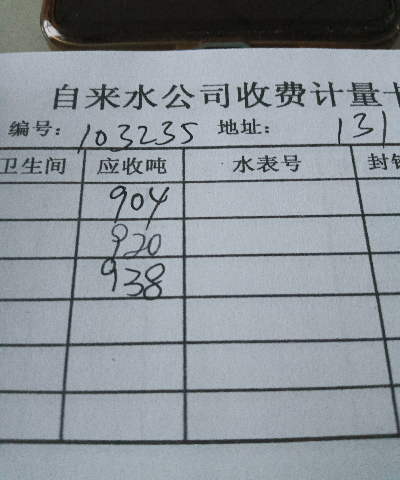 自来水公司收费计量卡
编号: 103235 地址: 131
卫生间 应收吨 水表号 封
904
920
938